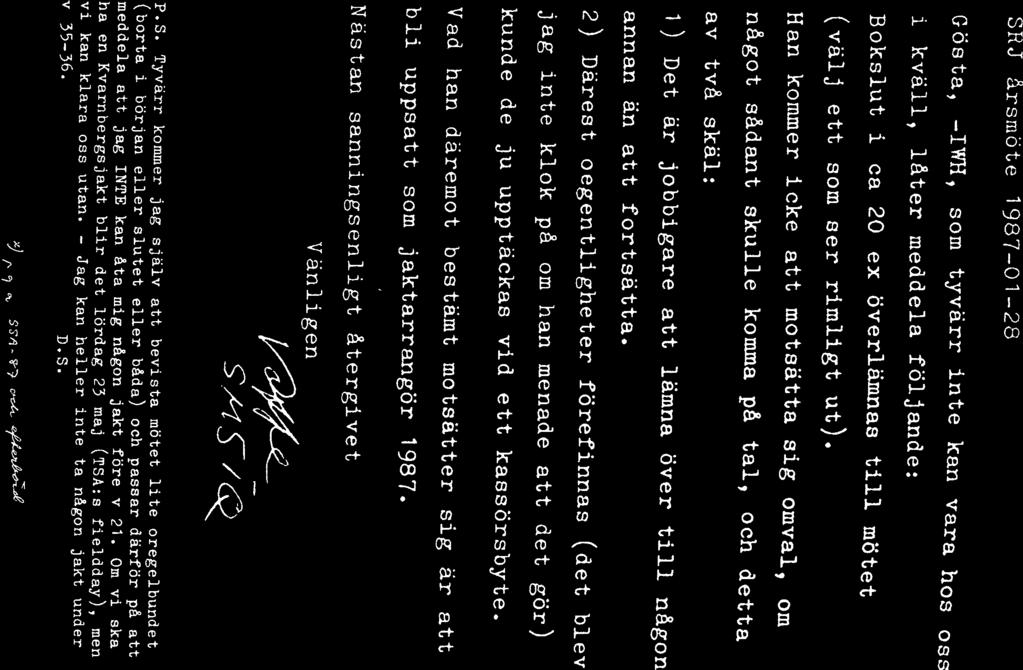 SRJ årsmöte 1987-01-28
Gösta, -IWH, som tyvärr inte kan vara hos oss
i kväll, låter meddela följande:
Bokslut i ca 20 ex överlämnas till mötet
(välj ett som ser rimligt ut).
Han kommer icke att motsätta sig omval, om
något sådant skulle komma på tal, och detta
av två skäl:
1) Det är jobbigare att lämna över till någon
annan än att fortsätta.
2) Därest oegentligheter förefinnas (det blev
jag inte klok på om han menade att det gör)
kunde de ju upptäckas vid ett kassörsbyte.
Vad han däremot bestämt motsätter sig är att
bli uppsatt som jaktarrangör 1987.
Nästan sanningsenligt återgivet
Vänligen
SM5IQ
P.S. Tyvärr kommer jag själv att bevista mötet lite oregelbundet
(borta i början eller slutet eller båda) och passar därför på att
meddela att jag INTE kan åta mig någon jakt före v 21. Om vi ska
ha en Kvarnbergsjakt blir det lördag 23 maj (TSA:s fieldday), men
vi kan klara oss utan. - Jag kan heller inte ta någon jakt under
v 35-36.
D.S.
x) p g a SSA-87 och efterbörd